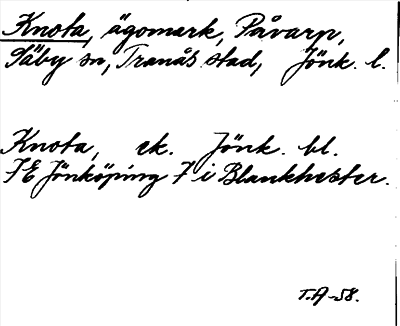 Knota, ägomark, Påvarp,
Säby sn, Tranås stad, Jönk. l.
Knota, ek. Jönk. bl.
7E Jönköping 7 i Blankhester.
T.A-58.